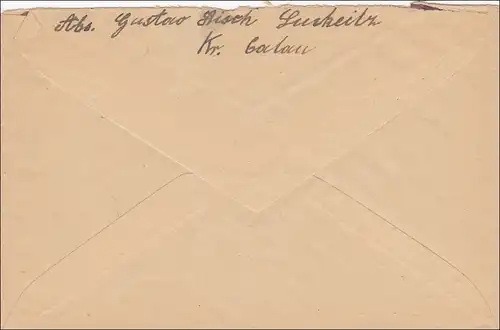 Abs. Gustav Risch Luckaitz
Kr. Calau